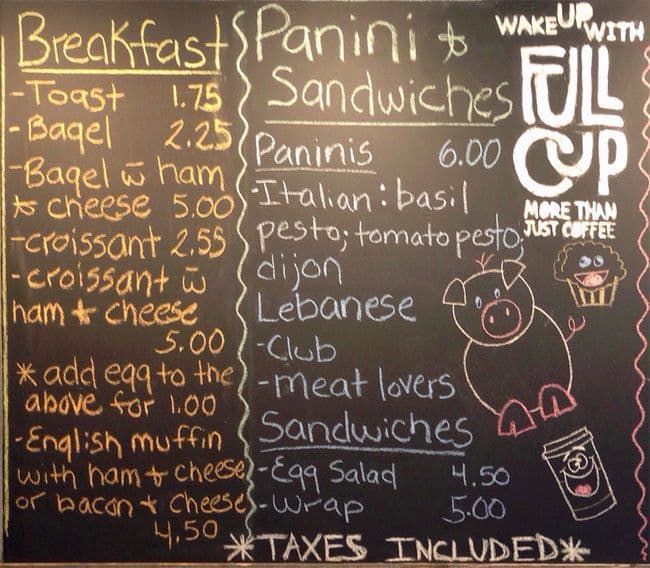 Breakfast
-Toast 1.75
-Bagel 2.25
-Bagel w̄ ham
& cheese 5.00
-croissant 2.55
-croissant w̄
ham & cheese
5.00
* add egg to the
above for 1.00
-English muffin
with ham & cheese
or bacon & cheese
4.50
Panini &
Sandwiches
Paninis 6.00
-Italian: basil
pesto; tomato pesto;
dijon
Lebanese
-Club
-meat lovers
Sandwiches
-Egg Salad 4.50
-Wrap 5.00
*TAXES INCLUDED*
WAKE UP WITH
FULL
CUP
MORE THAN
JUST COFFEE